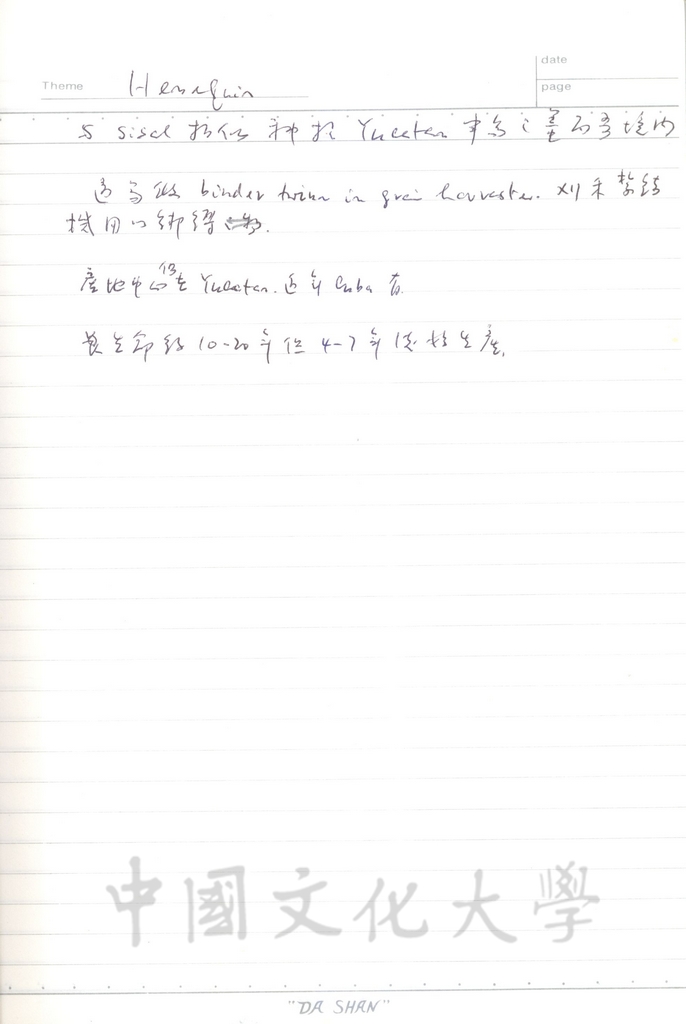 date
Theme Henequin
page
5 sisal 相似 種於 Yucatan 半島之
binder twine in grain harvester. 刈禾紮結
機用以綁
產地 仍在 Yucatan. 近年 Cuba 有
其生命約 10-20 年但 4-7 年後始生產.
中國文化大學
"DA SHAN"